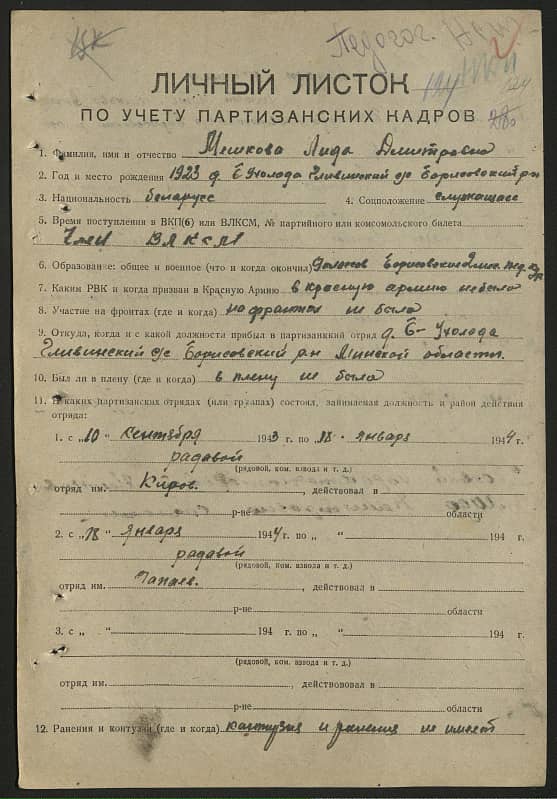 Педагог.
ЛИЧНЫЙ ЛИСТОК
ПО УЧЕТУ ПАРТИЗАНСКИХ КАДРОВ
1. Фамилия, имя и отчество Мешкова Лида Дмитровна
2. Год и место рождения 1923 д Б Ухолода Гливинский с/с Борисовский рн
3. Национальность беларусс 4. Соцположение служащая
5. Время поступления в ВКП(б) или ВЛКСМ, № партийного или комсомольского билета
Член ВЛКСМ
6. Образование: общее и военное (что и когда окончил) Борисовские
7. Каким РВК и когда призван в Красную Армию в красную армию небыла
8. Участие на фронтах (где и когда) на фронтах не была
9. Откуда, когда и с какой должности прибыл в партизанский отряд д. Б-Ухолода
Гливинский с/с Борисовский рн Минской области.
10. Был ли в плену (где и когда) в плену не была
11. В каких партизанских отрядах (или группах) состоял, занимаемая должность и район действия
отряда:
1. с „10" сентября 1943 г. по „18" января 1944 г.
радавой
(рядовой, ком. взвода и т. д.)
отряд им. Киров. , действовал в
р-не области
2. с „18" января 1944 г. по „ " 194 г.
радавой
(рядовой, ком. взвода и т. д.)
отряд им. Чапаев. , действовал в
р-не области
3. с „ " 194 г. по „ " 194 г.
(рядовой, ком. взвода и т. д.)
отряд им. , действововал в
р-не области
12. Ранения и контузии (где и когда) контузия и ранения не имеет